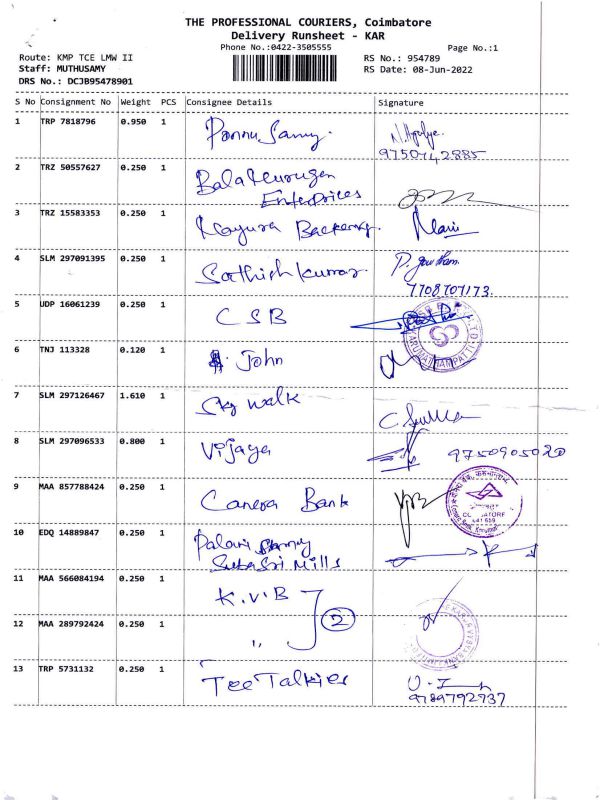 THE PROFESSIONAL COURIERS, Coimbatore
Delivery Runsheet - KAR
Phone No.:0422-3505555
Page No.:1
Route: KMP TCE LMW II
RS No.: 954789
Staff: MUTHUSAMY
RS Date: 08-Jun-2022
DRS No.: DCJB95478901
S No Consignment No Weight PCS Consignee Details Signature
1 TRP 7818796 0.950 1 Ponnu Samy.
9750742885
2 TRZ 50557627 0.250 1 Balamurugan
Enterprices
3 TRZ 15583353 0.250 1 Mayura Backery. Mani
4 SLM 297091395 0.250 1 Sathish Kumar. P. Gowtham.
7708707173.
5 UDP 16061239 0.250 1 CSB
6 TNJ 113328 0.120 1 John
7 SLM 297126467 1.610 1 Sky walk
8 SLM 297096533 0.800 1 Vijaya 9750905020
9 MAA 857788424 0.250 1 Canera Bank
10 EDQ 14889847 0.250 1 Palani Samy
Suba Sri Mills
11 MAA 566084194 0.250 1 K.V.B
2
12 MAA 289792424 0.250 1 ,,
13 TRP 5731132 0.250 1 Tee Talkies
9789792737